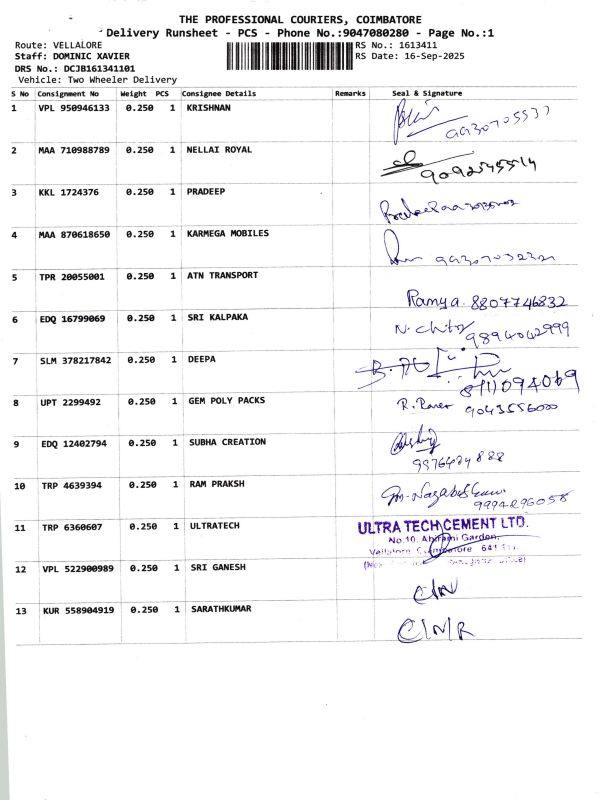 THE PROFESSIONAL COURIERS, COIMBATORE
Delivery Runsheet - PCS - Phone No.:9047080280 - Page No.:1
Route: VELLALORE
RS No.: 1613411
Staff: DOMINIC XAVIER
RS Date: 16-Sep-2025
DRS No.: DCJB161341101
Vehicle: Two Wheeler Delivery
S No Consignment No Weight PCS Consignee Details Remarks Seal & Signature
1 VPL 950946133 0.250 1 KRISHNAN
2 MAA 710988789 0.250 1 NELLAI ROYAL
3 KKL 1724376 0.250 1 PRADEEP
4 MAA 870618650 0.250 1 KARMEGA MOBILES
5 TPR 20055001 0.250 1 ATN TRANSPORT
Ramya. 8807746832
6 EDQ 16799069 0.250 1 SRI KALPAKA
9894042999
7 SLM 378217842 0.250 1 DEEPA
8 UPT 2299492 0.250 1 GEM POLY PACKS
9043556000
9 EDQ 12402794 0.250 1 SUBHA CREATION
10 TRP 4639394 0.250 1 RAM PRAKSH
9994296058
11 TRP 6360607 0.250 1 ULTRATECH
ULTRA TECH CEMENT LTD.
No.10, Abirami Garden,
Vellalore, Coimbatore
12 VPL 522900989 0.250 1 SRI GANESH
C/N
13 KUR 558904919 0.250 1 SARATHKUMAR
C/N/R